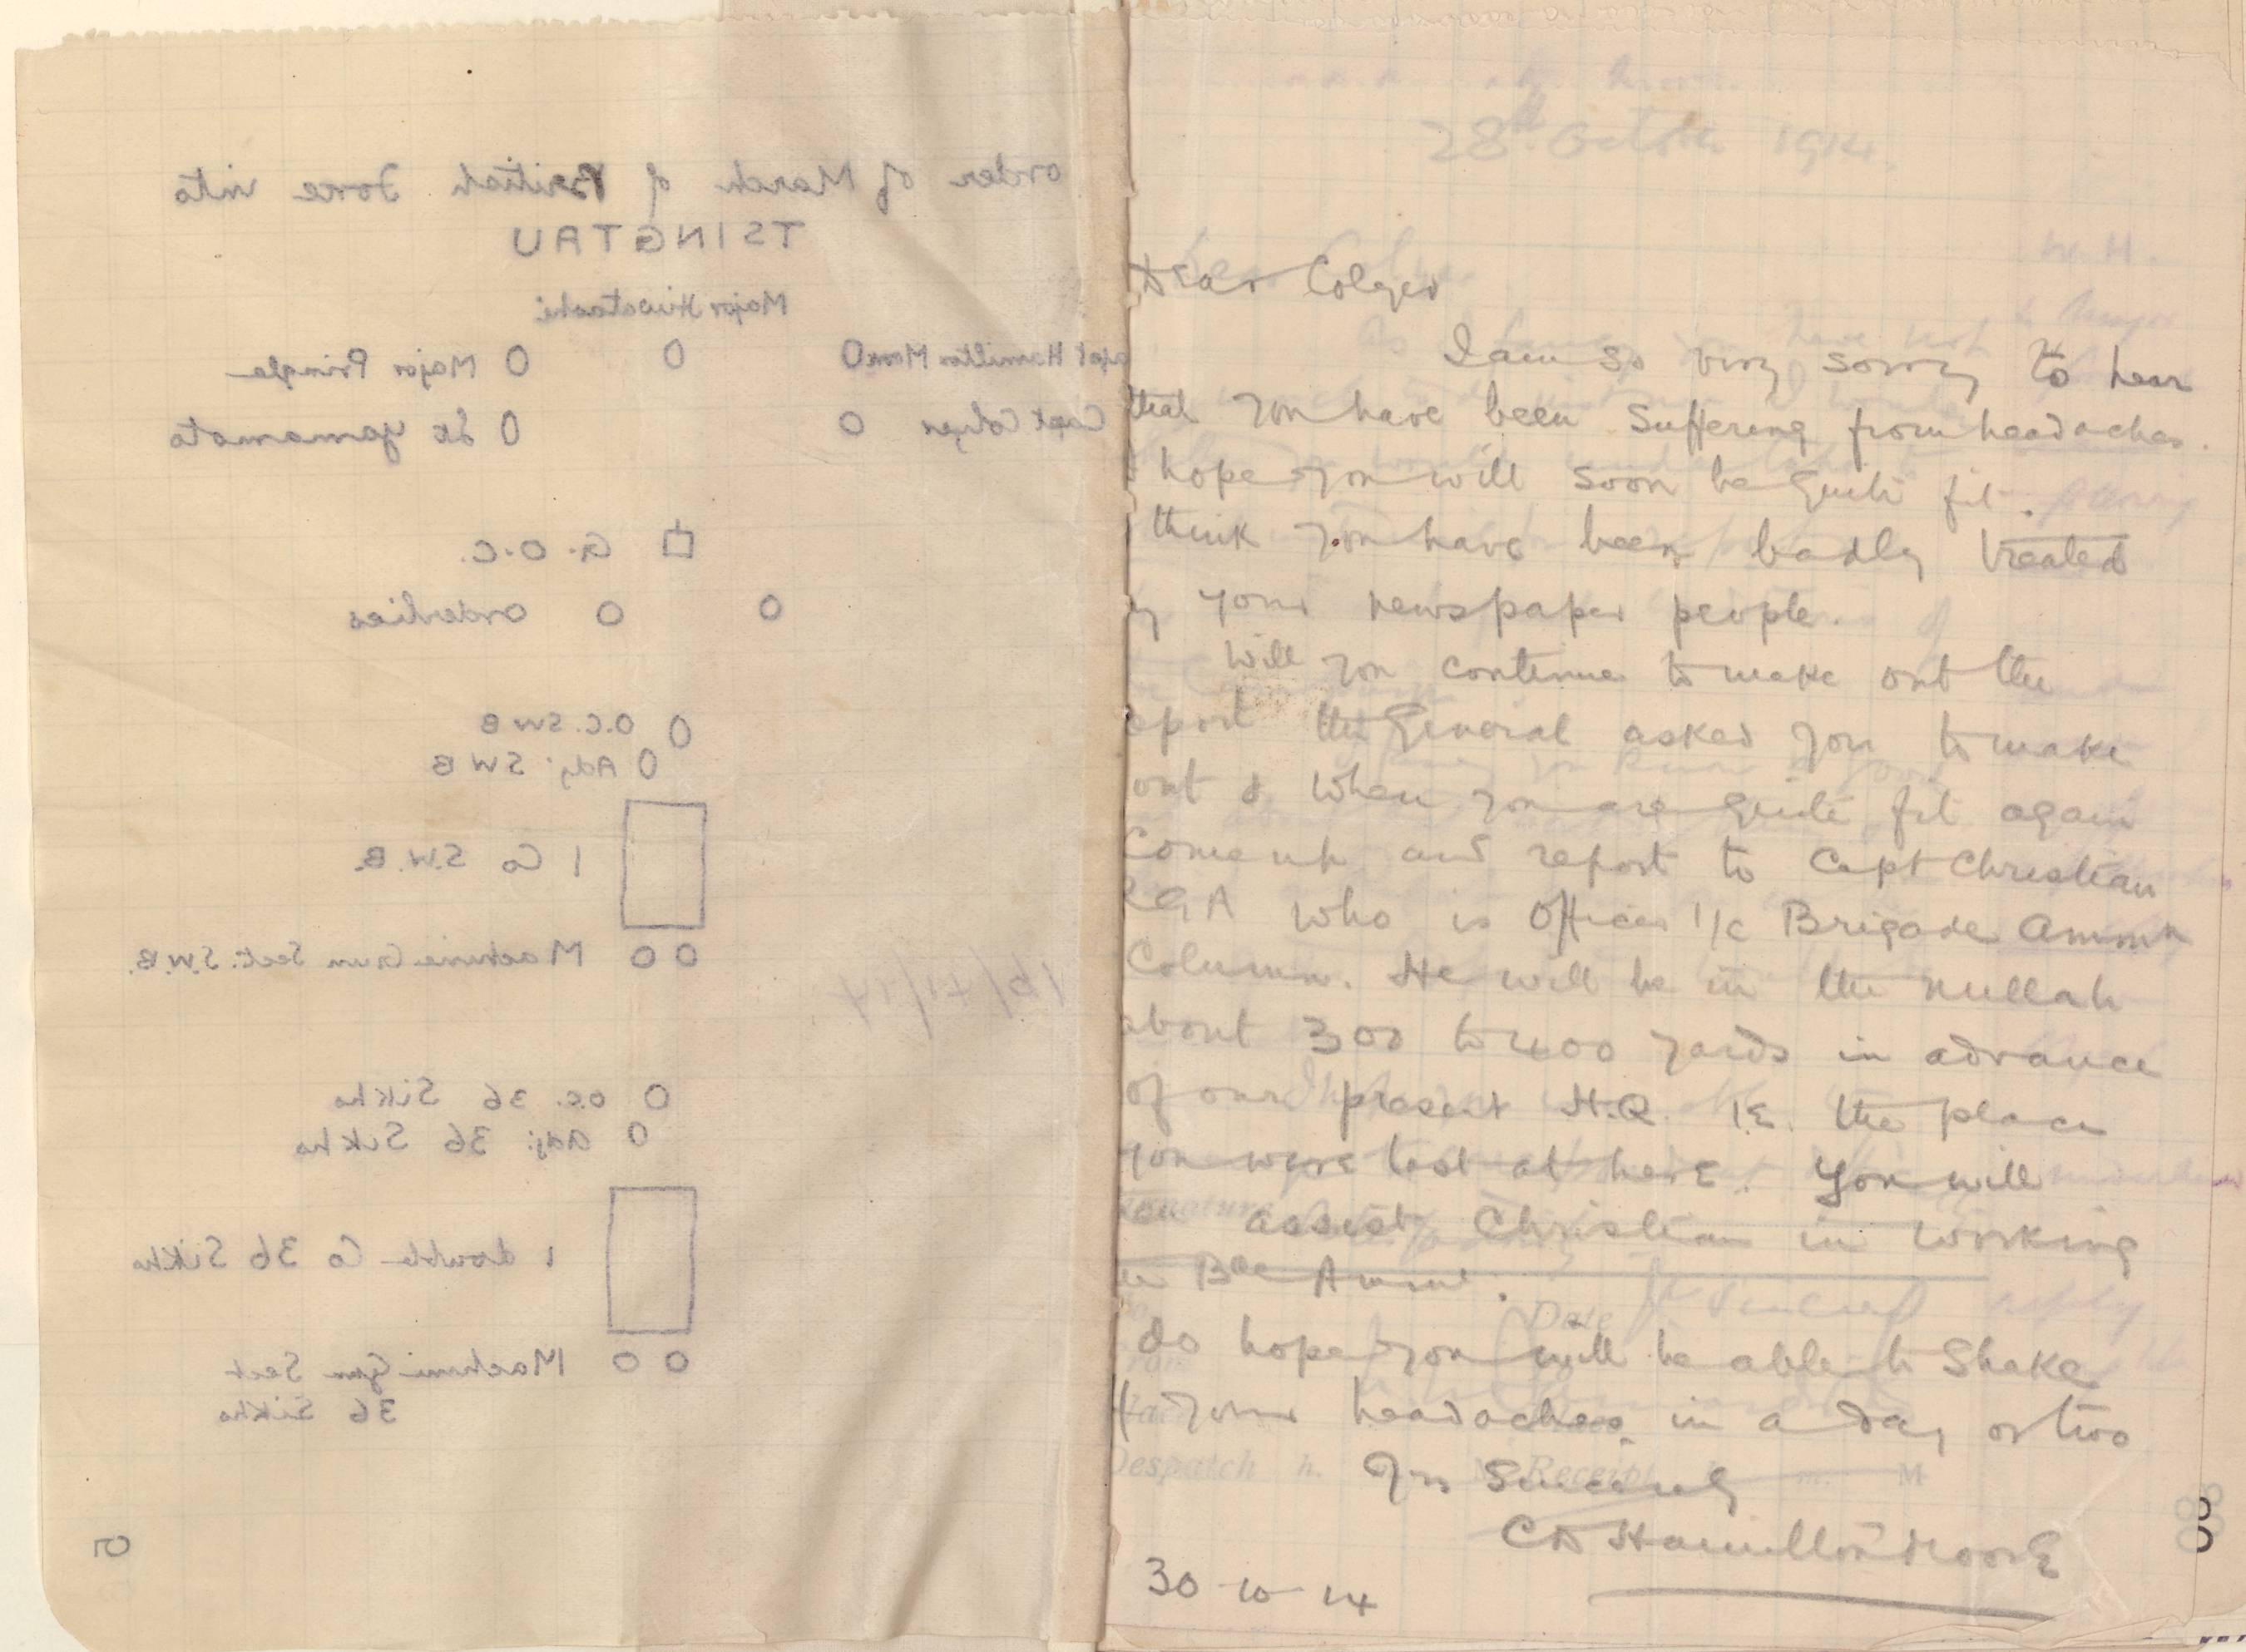 order of March of British Force into
TSINGTAU
Major Hiwatashi
Capt Hamilton Moore O O O Major Pringle
Capt Colyer O O Lt Yamamoto
G.O.C.
O O orderlies
O O.C. SWB
O Adj: SWB
1 Co S.W.B.
O O Machine Gun Sect: S.W.B.
16/11/14
O o.c. 36 Sikhs
O adj: 36 Sikhs
1 double Co 36 Sikhs
O O Machine Gun Sect
36 Sikhs
5
28th October 1914.
Dear Colyer
I am so very sorry to hear
that you have been suffering from headaches.
I hope you will soon be quite fit.
I think you have been badly treated
by your newspaper people.
Will you continue to make out the
report the General asked you to make
out & when you are quite fit again
Come up and report to Capt Christian
RGA who is Officer i/c Brigade Ammn
Column. He will be in the nullah
about 300 to 400 yards in advance
of our present H.Q. I.E. the place
you were last at here. You will
assist Christian in working
Bde Ammn.
do hope you will be able to Shake
off your headaches in a day or two
Yrs Sincerely
CD Hamilton Moore
30-10-14
Date
Despatch h. m. Receipt m. M
8